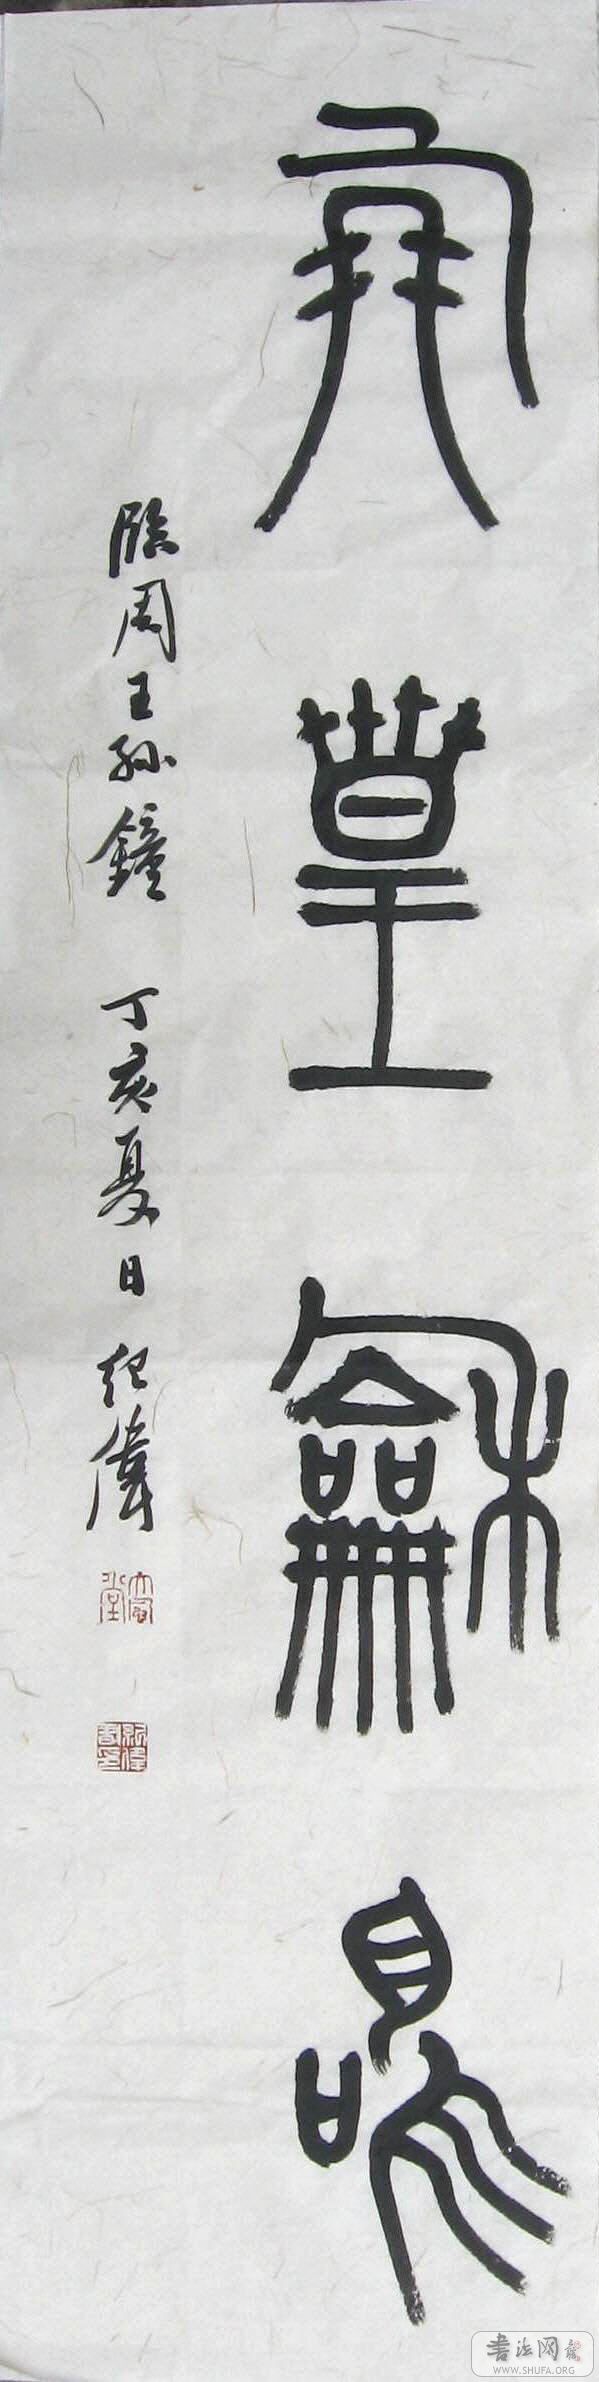 鳳皇龢鳴
臨周王孫鐘 丁亥夏日 紀偉
書法网
WWW.SHUFA.ORG